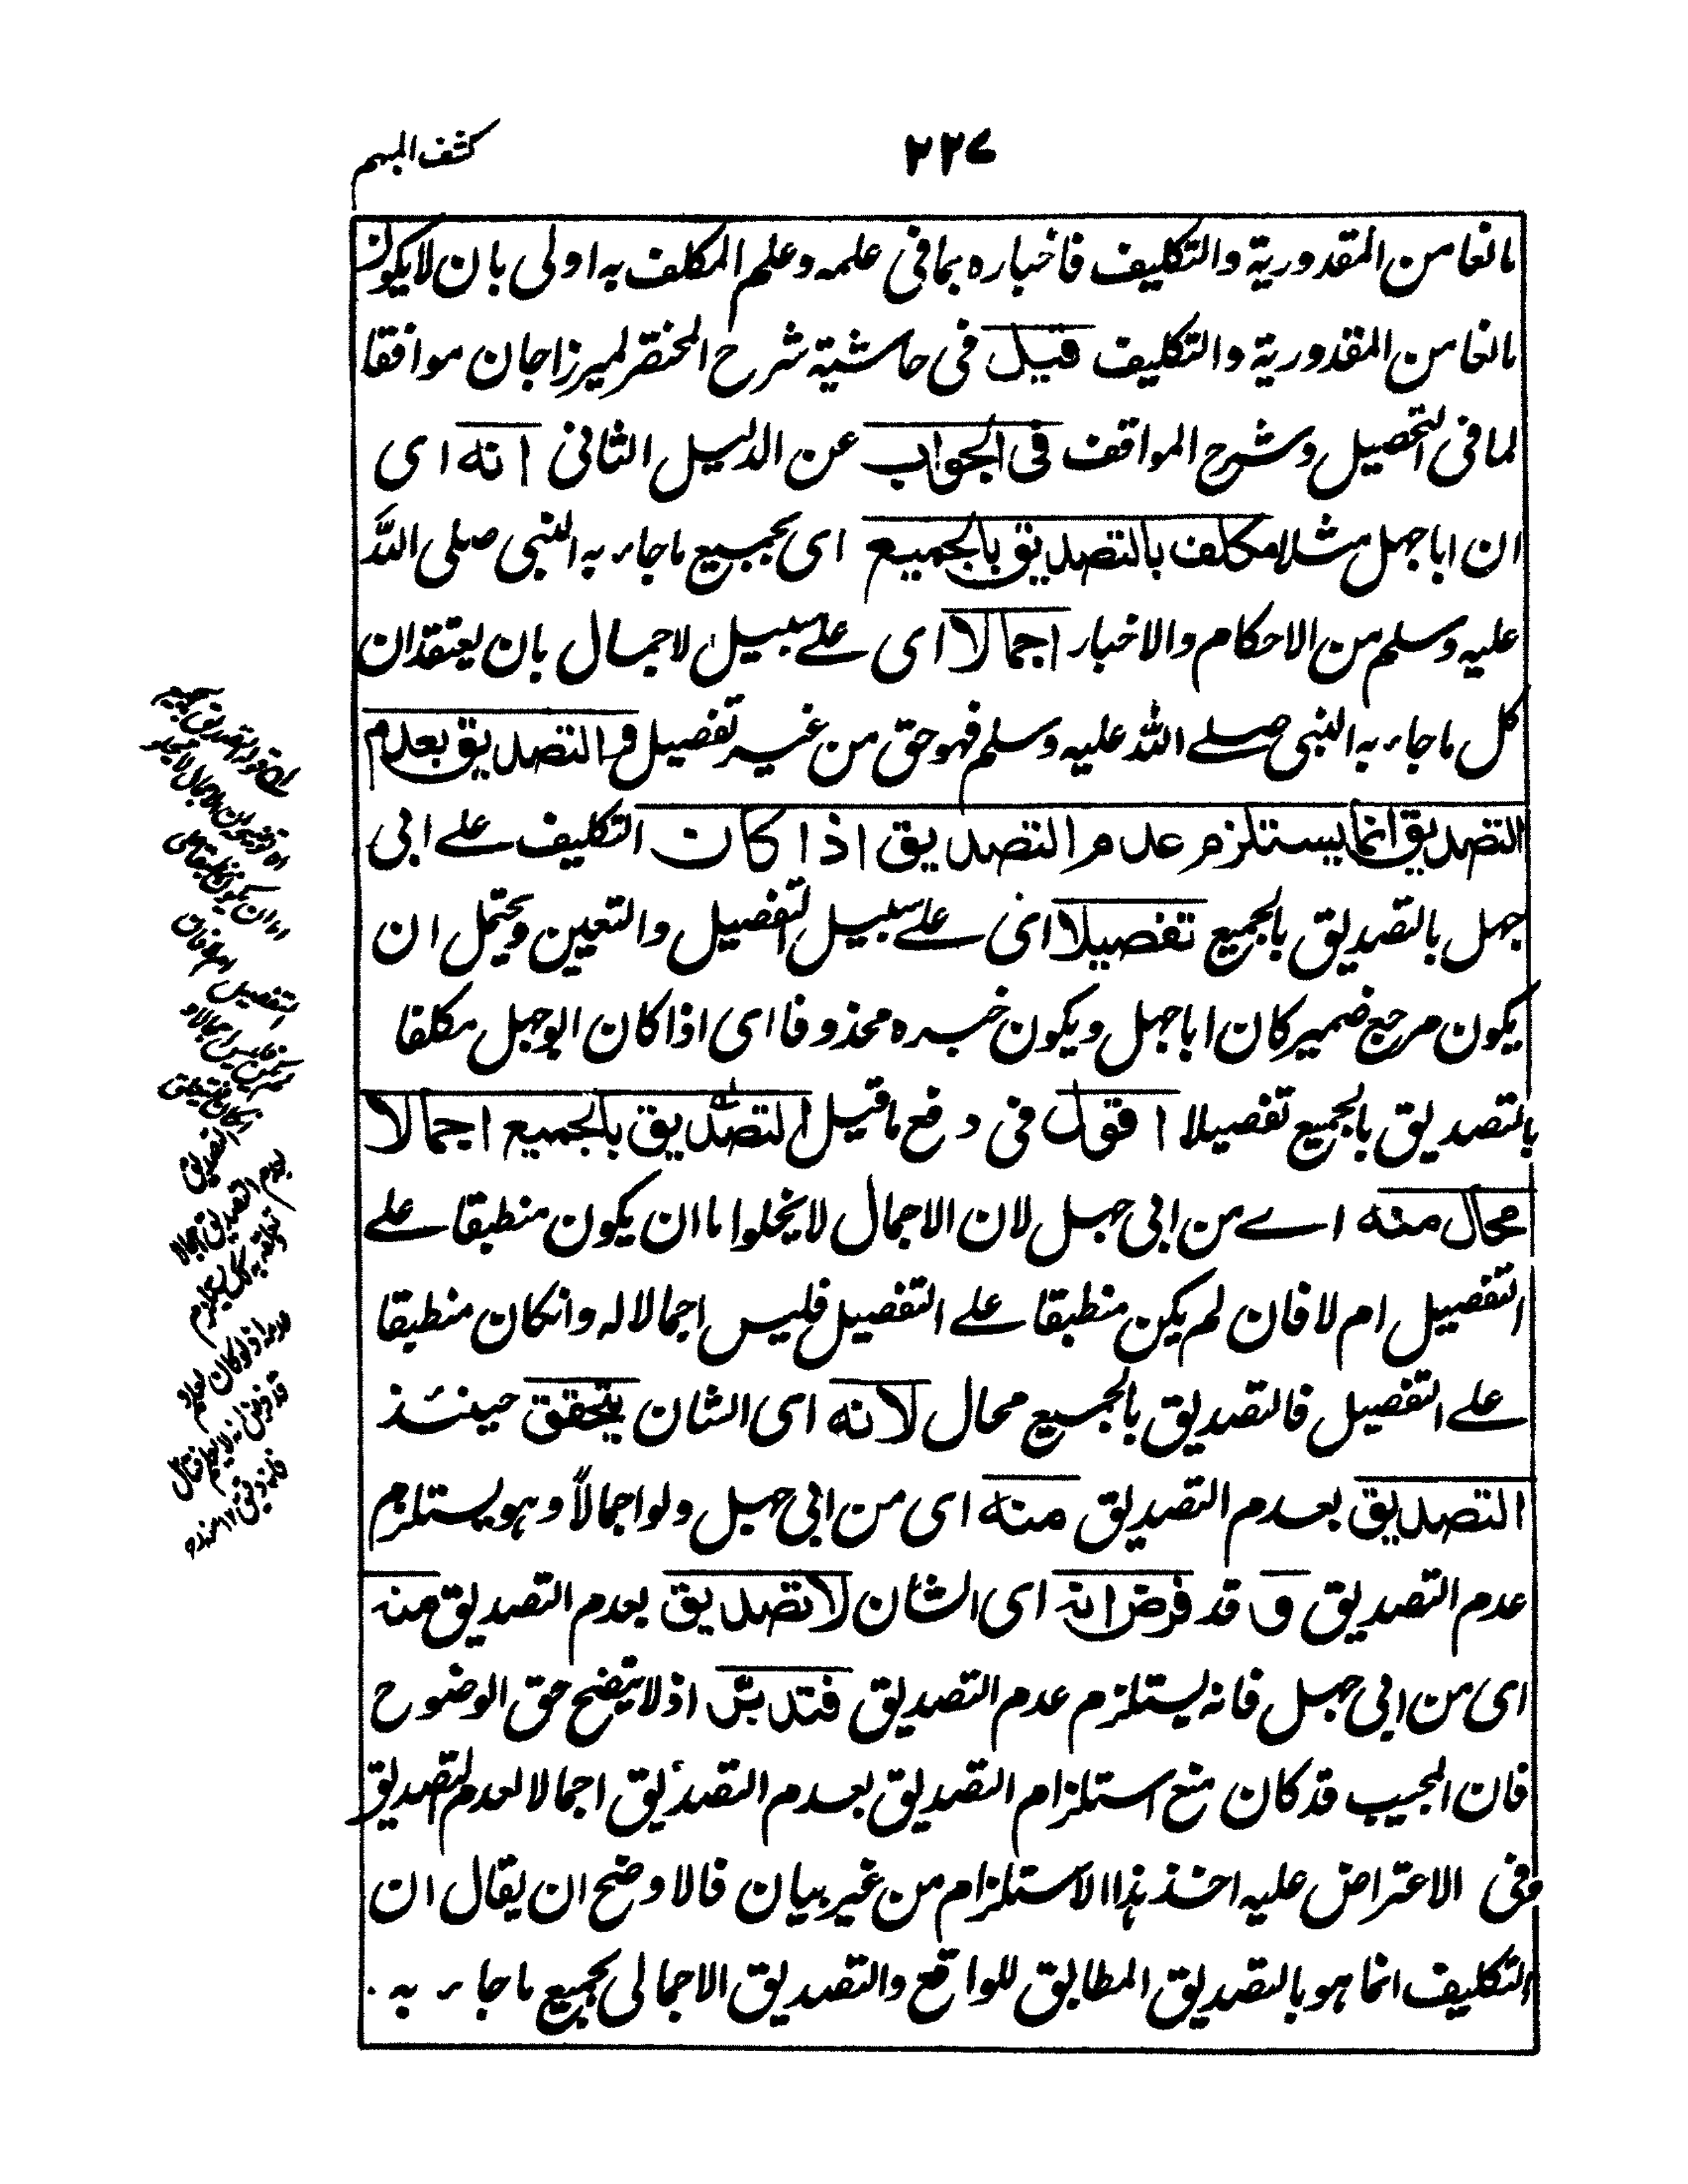 كشف المبهم
٢٢٧
مانعا من المقدورية والتكليف فاخباره بما فى علمه وعلم المكلف به اولى بان لا يكون
مانعا من المقدورية والتكليف قيل فى حاشية شرح المختصر لميرزاجان موافقا
لما فى التحصيل وشرح المواقف فى الجواب عن الدليل الثانى انه اى
ان اباجهل مثلا مكلف بالتصديق بالجميع اى بجميع ماجاء به النبى صلى الله
عليه وسلم من الاحكام والاخبار اجمالا اى علے سبيل لاجمال بان يعتقد ان
كل ماجاء به النبى صلے الله عليه وسلم فهو حق من غير تفصيل و التصديق بعدم
التصديق انما يستلزم عدم التصديق اذا كان التكليف علے ابى
جهل بالتصديق بالجميع تفصيلا اى علے سبيل التفصيل والتعيين ويحتمل ان
يكون مرجع ضمير كان اباجهل ويكون خبره محذوفا اى اذا كان ابوجهل مكلفا
بالتصديق بالجميع تفصيلا اقول فى دفع ماقيل التصديق بالجميع اجمالا
محال منه اے من ابى جهل لان الاجمال لا يخلوا ما ان يكون منطبقا علے
التفصيل ام لا فان لم يكن منطبقا علے التفصيل فليس اجمالا له وانكان منطبقا
علے التفصيل فالتصديق بالجميع محال لانه اى الشان يتحقق حينئذ
التصديق بعدم التصديق منه اى من ابى جهل ولو اجمالاً وهو يستلزم
عدم التصديق و قد فرض انه اى الشان لا تصديق بعدم التصديق منه
اى من ابى جهل فانه يستلزم عدم التصديق فتدبر اذ لا يتضح حق الوضوح
فان المجيب قد كان منع استلزام التصديق بعدم التصديق اجمالا لعدم التصديق
وفى الاعتراض عليه اخذ هذا الاستلزام من غير بيان فالاوضح ان يقال ان
التكليف انما هو بالتصديق المطابق للواقع والتصديق الاجمالى بجميع ماجاء به